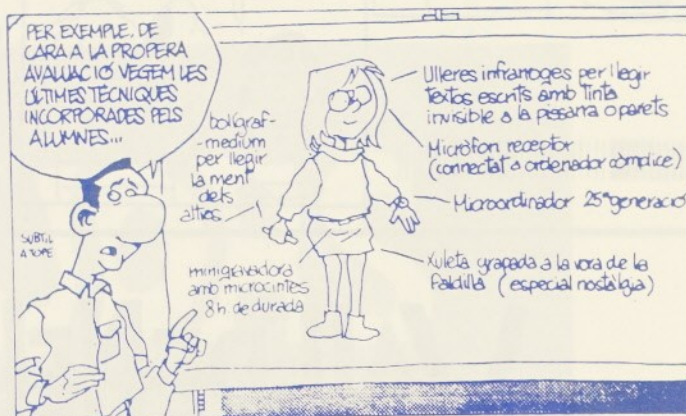 PER EXEMPLE, DE
CARA A LA PROPERA
AVALUACIÓ VEGEM LES
ÚLTIMES TÈCNIQUES
INCORPORADES PELS
ALUMNES...
SUBTIL
A TOPE
bolígraf-
-medium
per llegir
la ment
dels
altres
minigravadora
amb microcintes
8h. de durada
Ulleres infraroges per llegir
textos escrits amb tinta
invisible a la pissarra o parets
Micròfon receptor
(connectat a ordenador còmplice)
Microordinador 25ª generació
Xuleta grapada a la vora de la
Faldilla (especial nostàlgia)